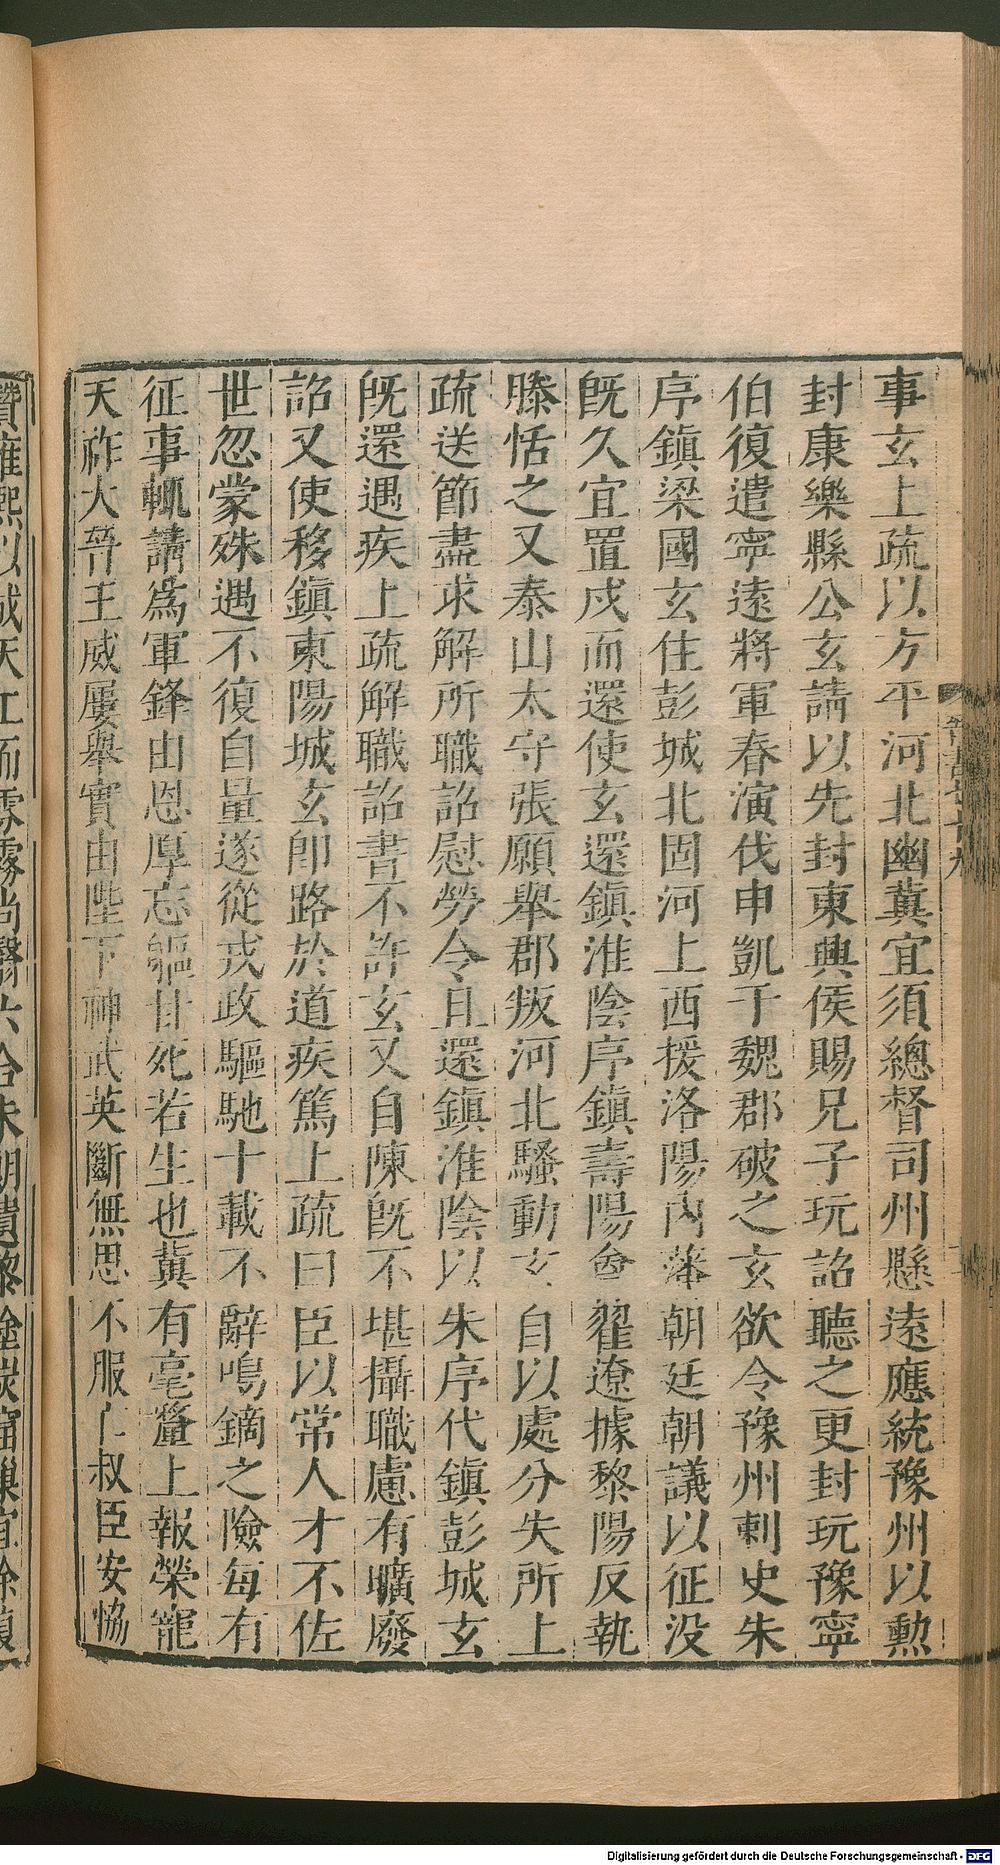 事玄上疏以方平河北幽冀宜須總督司州懸遠應統豫州以勲
封康樂縣公玄請以先封東興侯賜兄子玩詔聽之更封玩豫寧
伯復遣寧遠將軍春演伐申凱于魏郡破之玄欲令豫州刺史朱
序鎮梁國玄住彭城北固河上西援洛陽內藩朝廷朝議以征役
旣久宜置戍而還使玄還鎮淮陰序鎮壽陽會翟遼據黎陽反執
滕恬之又泰山太守張願舉郡叛河北騷動玄自以處分失所上
疏送節盡求解所職詔慰勞令且還鎮淮陰以朱序代鎮彭城玄
旣還遇疾上疏解職詔書不許玄又自陳旣不堪攝職慮有曠廢
詔又使移鎮東陽城玄卽路於道疾篤上疏曰臣以常人才不佐
世忽蒙殊遇不復自量遂從戎政驅馳十載不辭鳴鏑之險每有
征事輒請爲軍鋒由恩厚忘軀甘死若生也冀有毫釐上報榮寵
天祚大晉王威屢舉實由陛下神武英斷無思不服亡叔臣安恊
贊雍熙以成天工而雰霧尚翳六合未朗遺黎塗炭巢窟宜除復
Digitalisierung gefördert durch die Deutsche Forschungsgemeinschaft - DFG